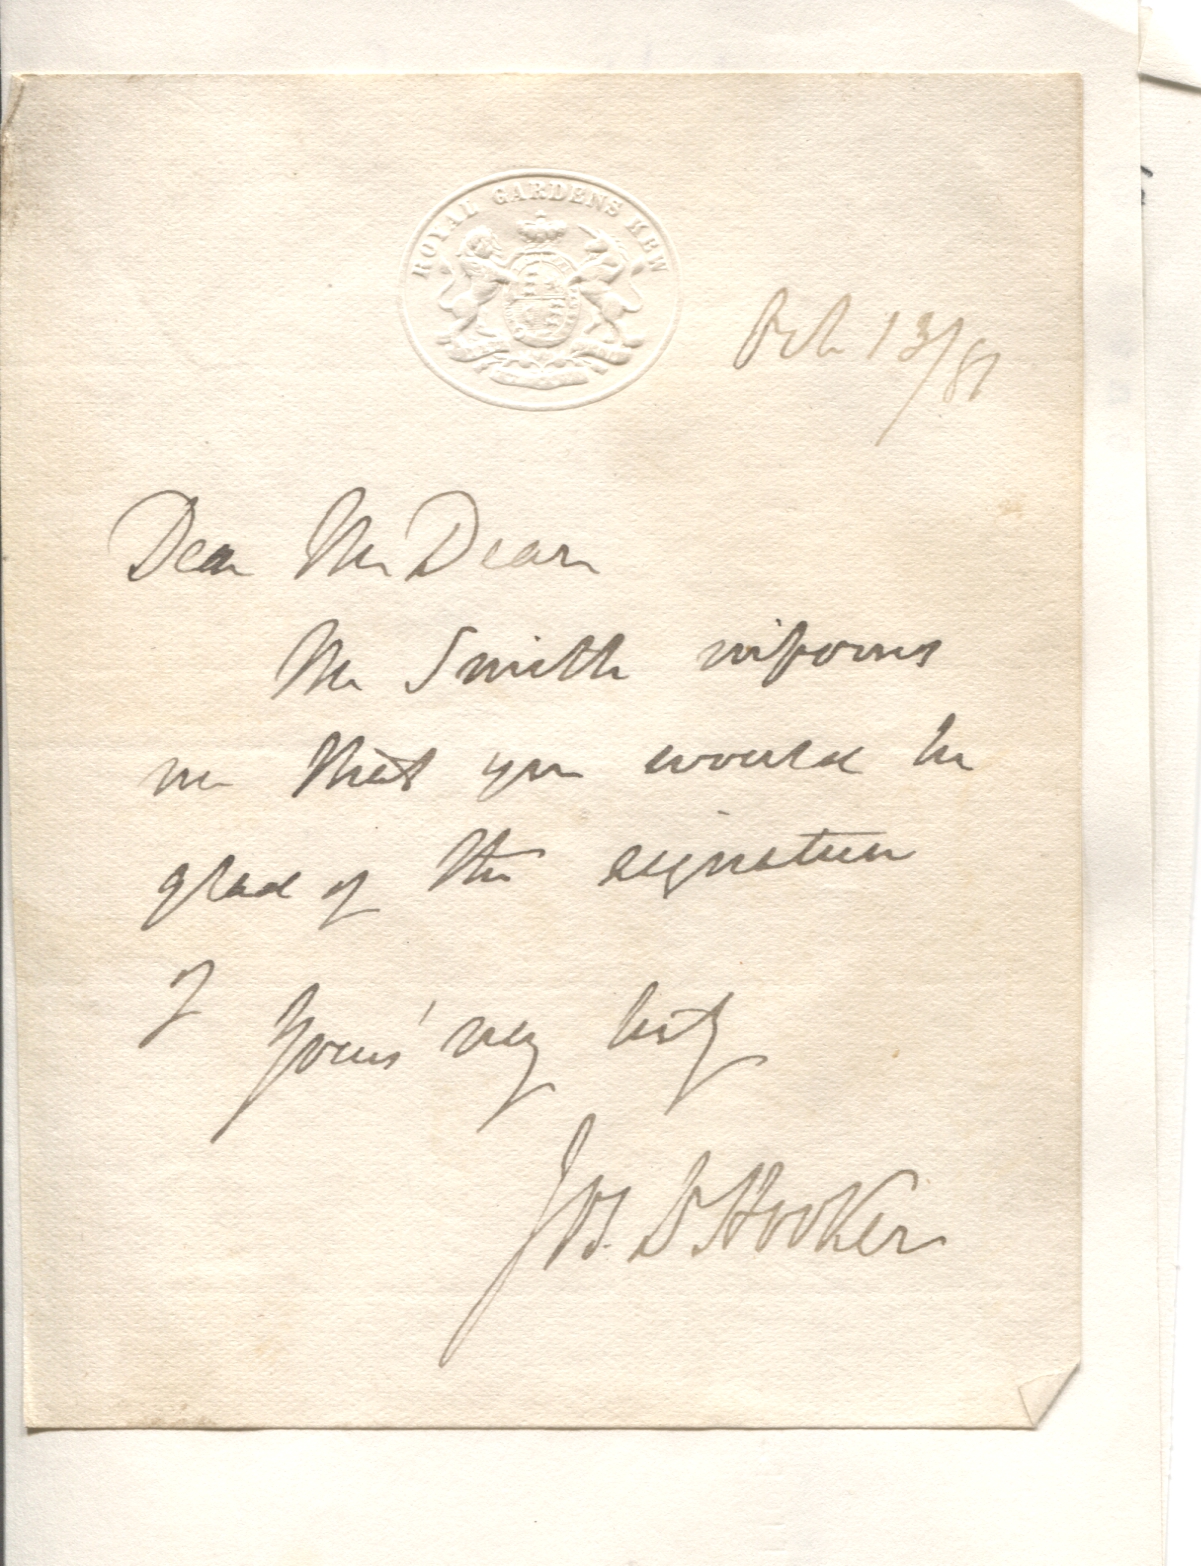 ROYAL GARDENS KEW
Oct 13/81
Dear Mr Dean
Mr Smith informs
me that you would be
glad of the signature
of
Yours' very truly
Jos. D. Hooker